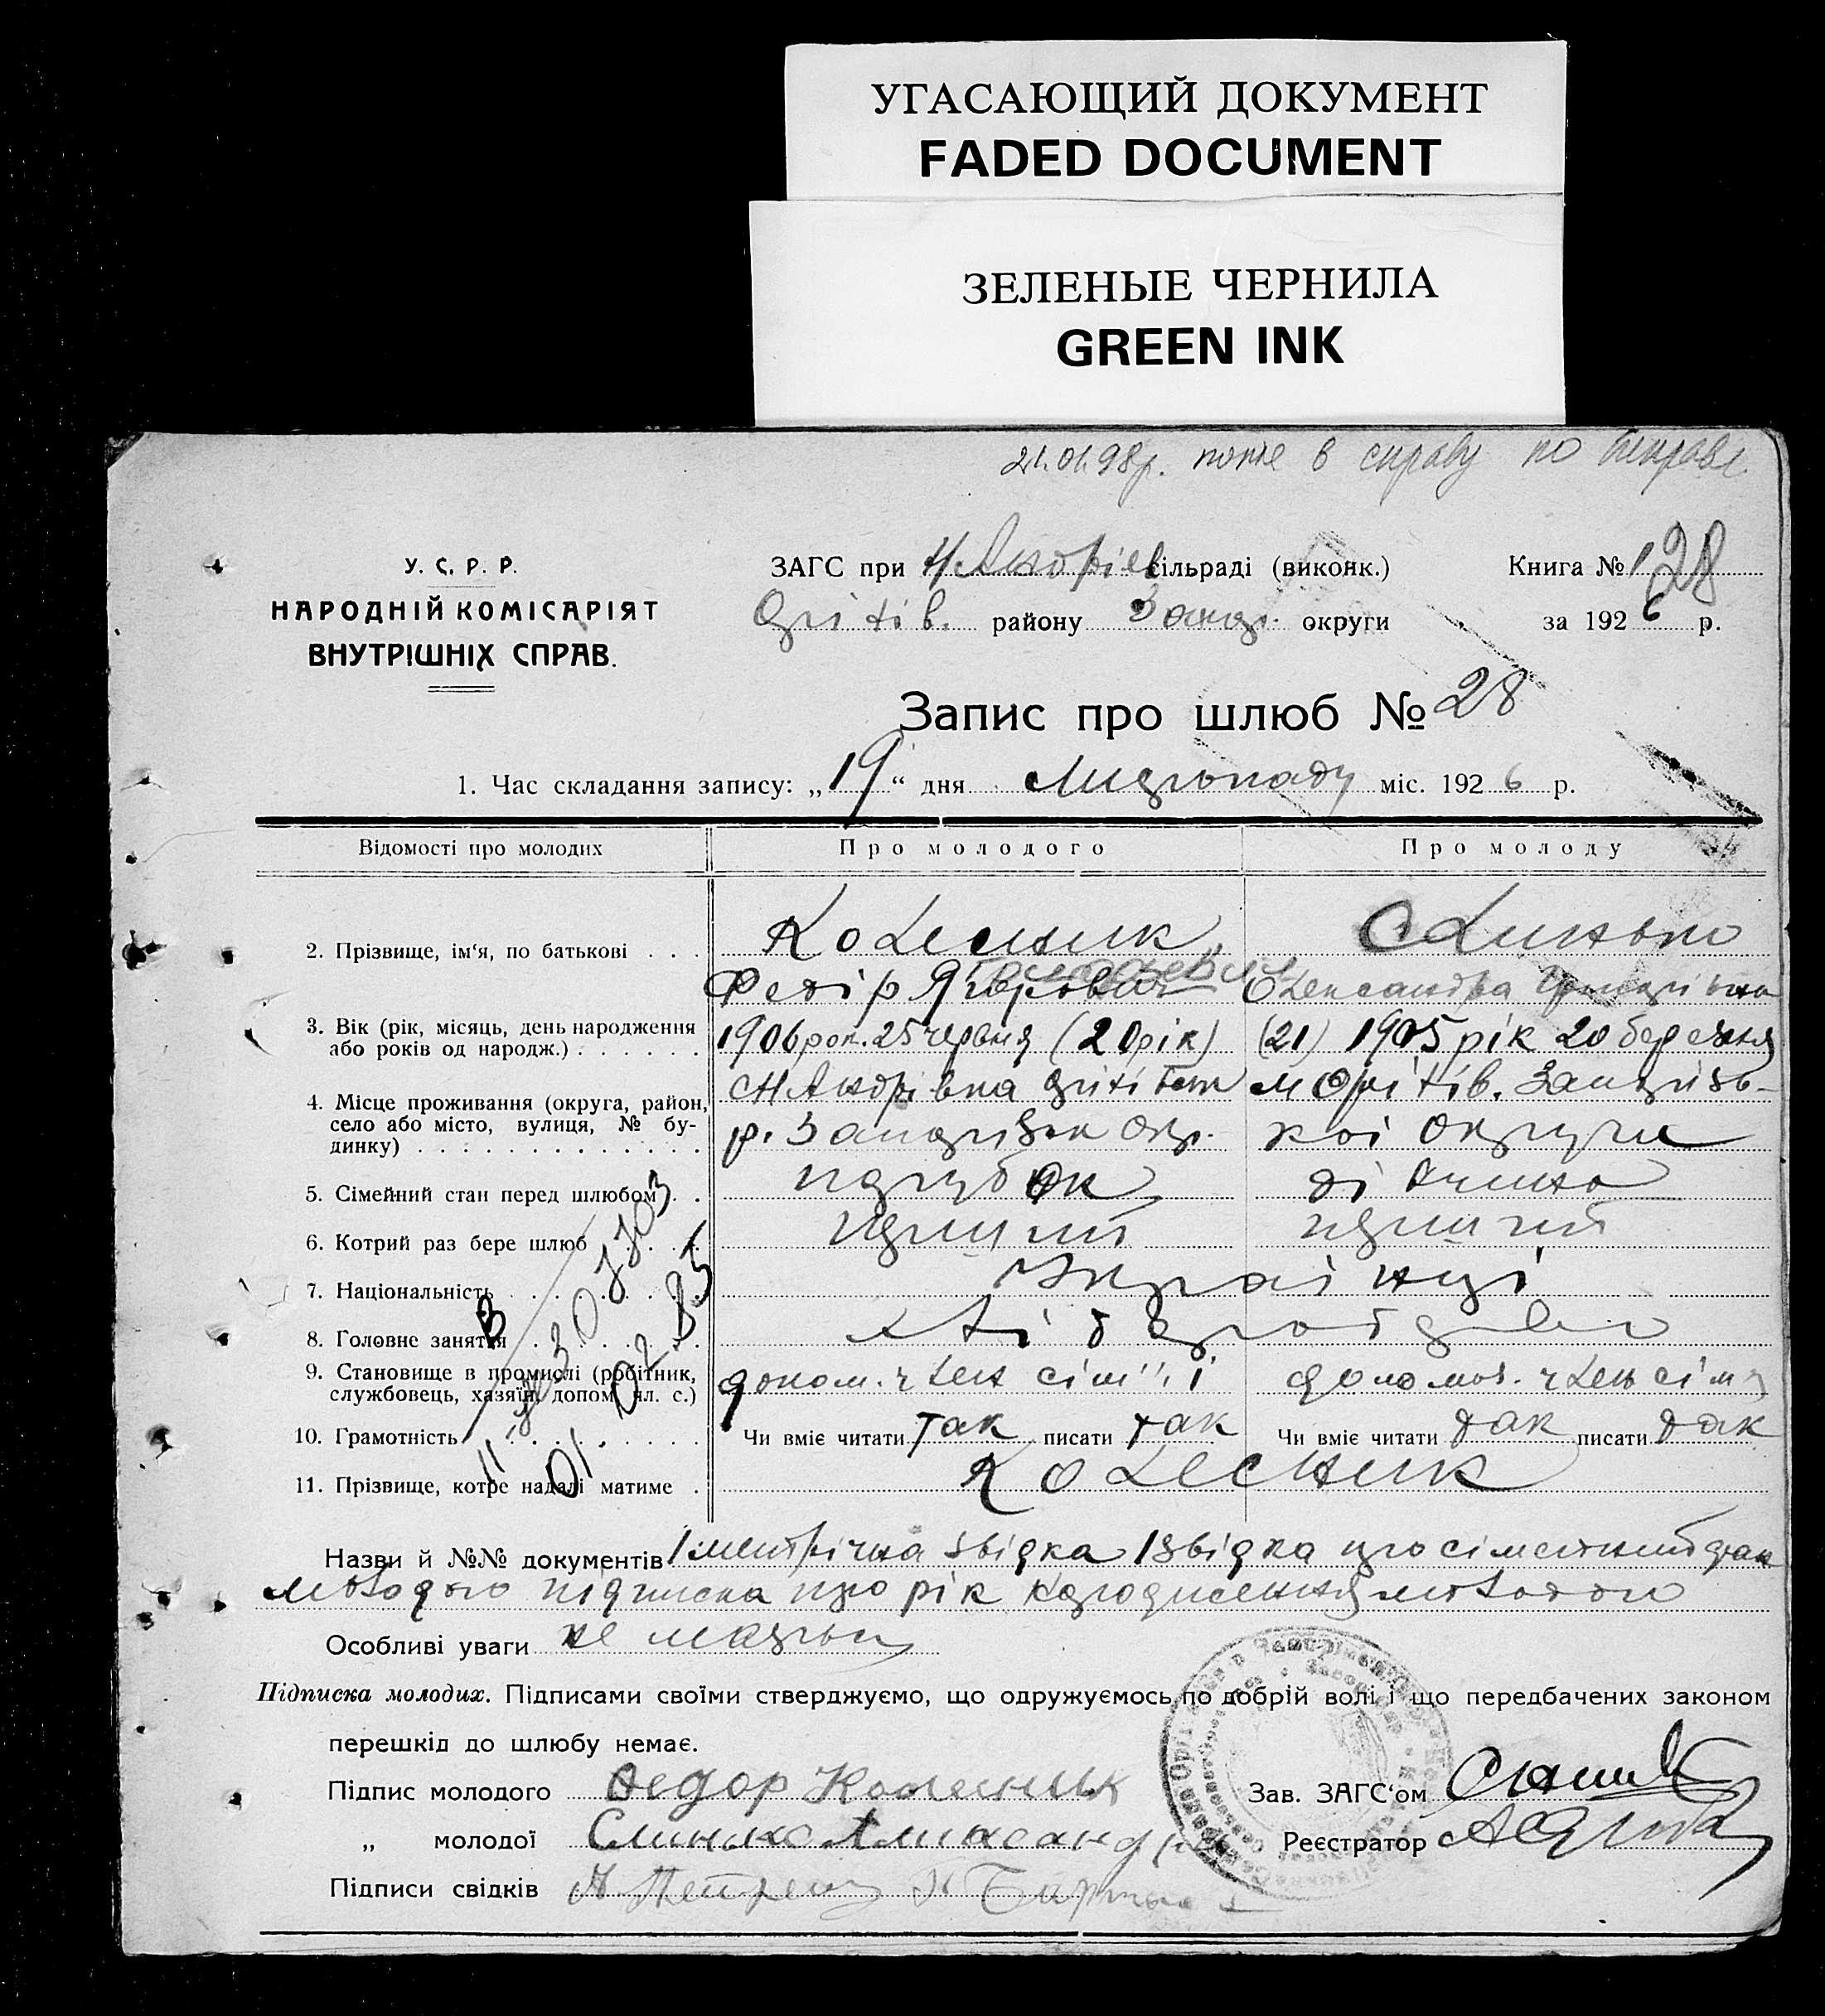 УГАСАЮЩИЙ ДОКУМЕНТ
FADED DOCUMENT
ЗЕЛЕНЫЕ ЧЕРНИЛА
GREEN INK
21.01.98р. в справу по
У. С. Р. Р.
НАРОДНІЙ КОМІСАРІЯТ
ВНУТРІШНІХ СПРАВ.
ЗАГС при Н. Андріев сільраді (виконк.)
Оріхів. району Запор. округи
Книга № 128
за 1926 р.
Запис про шлюб № 28
1. Час складання запису: „19“ дня Листопаду міс. 1926 р.
Відомості про молодих
Про молодого
Про молоду
2. Прізвище, ім‘я, по батькові . . .
Колесник
Федір
Слинько
Олександра Григорівна
3. Вік (рік, місяць, день народження або років од народж.) . . . . . .
1906 рок. 25 червня (20 рік)
(21) 1905 рік 20 березня
4. Місце проживання (округа, район, село або місто, вулиця, № будинку) . . . . . . . . . . . .
с Н Андрівка Оріхівськ
р. Запорізьк Окр.
м Оріхів. Запорізь-
кої Округи
5. Сімейний стан перед шлюбом . .
парубок
дівчина
6. Котрий раз бере шлюб . . . .
перший
перший
7. Національність . . . . . . . .
Українці
8. Головне заняття . . . . . . . .
хліборобство
9. Становище в промислі (робітник, службовець, хазяїн, допом. чл. с.)
допом. член сім'ї
допомог. член сім'ї
10. Грамотність . . . . . . . . .
Чи вміє читати так писати так
Чи вміє читати так писати так
11. Прізвище, котре надалі матиме .
Колесник
Назви й №№ документів 1 метрична звідка 1 звідка про сімейний стан
молодого підписка про рік народження молодої
Особливі уваги не мають
Підписка молодих. Підписами своїми стверджуємо, що одружуємось по добрій волі і що передбачених законом
перешкід до шлюбу немає.
Підпис молодого Федор Колесник
„ молодої Слинько
Підписи свідків
Зав. ЗАГС‘ом
Реєстратор